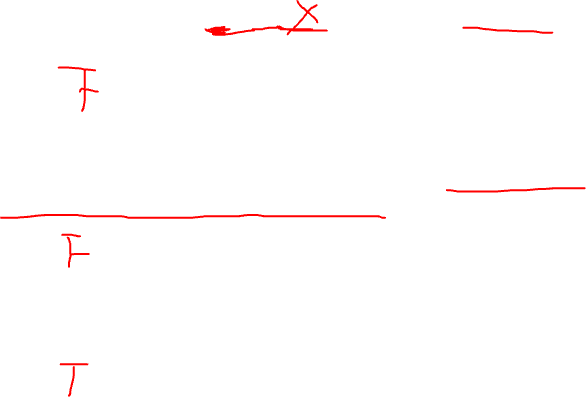 X
F
F
T